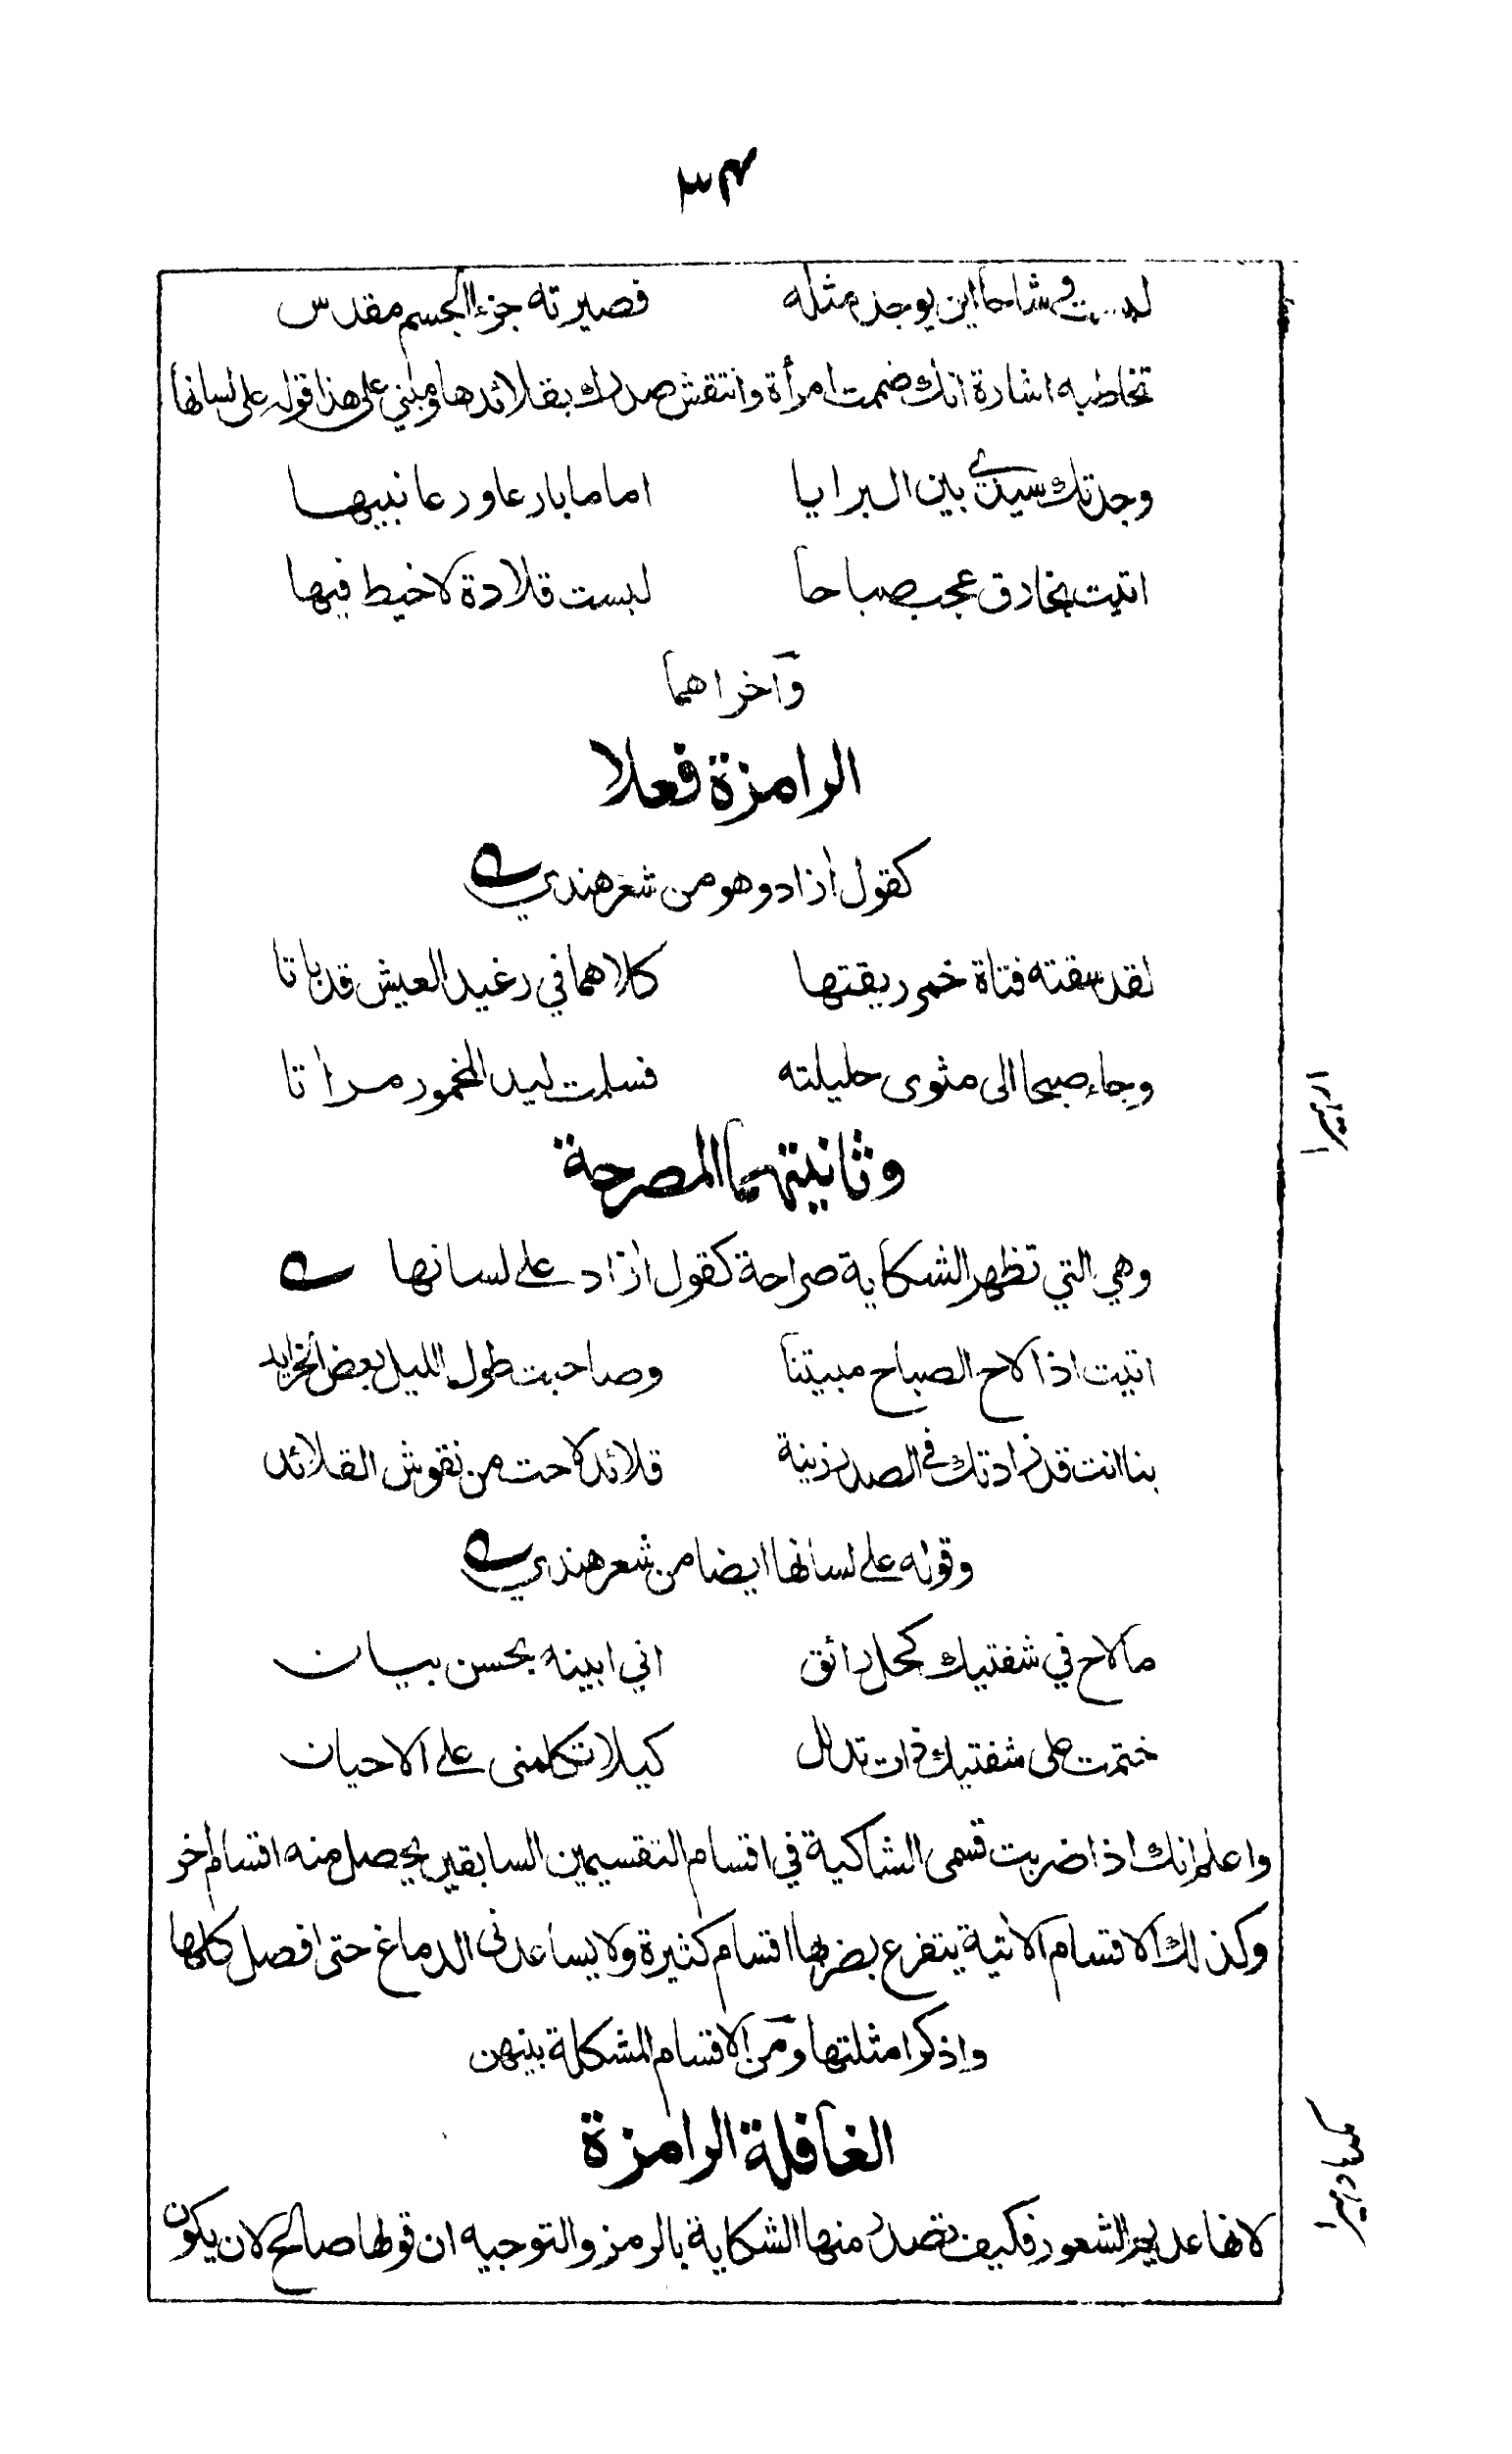 ٣٤
لبست وشاحا اين يوجد مثله فصيرته جزء الجسم مقدس
تخاطبه اشارة انك ضممت امرأة وانتقش صدرك بقلائدها ومبني على هذا قوله على لسانها
وجدتك سيدي بين البرايا اماما بارعا ورعا نبيها
اتيت بخارق عجب صباحا لبست قلادة لا خيط فيها
وآخراهما
الرامزة فعلا
كقول آزاد وهو من شعر هندي
لقد سقته فتاة خمر ريقتها كلاهما في رغيد العيش قد باتا
وجاء صبحا الى مثوى حليلته فسلمت ليد المخمور مرآتا
وثانيتهما المصرحة
وهي التي تظهر الشكاية صراحة كقول آزاد على لسانها
اتيت اذا لاح الصباح مبيتنا وصاحبت طول الليل بعض الخرايد
بنا انت قد زادتك في الصدر زينة قلائد لاحت من نقوش القلائد
وقوله على لسانها ايضا من شعر هندي
ما لاح في شفتيك كحل رائق اني ابينه بحسن بيان
ختمت على شفتيك ذات تدلل كيلا تكلمني على الاحيان
واعلم انك اذا ضربت قسمى الشاكية في اقسام التقسيمين السابقين يحصل منه اقسام أخر
وكذلك الاقسام الآتية يتفرع بضربها اقسام كثيرة ولا يساعدنى الدماغ حتى افصل كلها
واذكر امثلتها ومن الاقسام المشكلة بينهن
الغافلة الرامزة
لانها عديم الشعور فكيف تصدر منها الشكاية بالرمز والتوجيه ان قولها صالح لان يكون